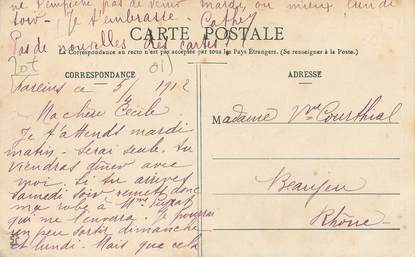 ne t'empêche pas de venir mardi, ou mieux lundi
soir. Je t'embrasse. Cathy
Pas de nouvelles des cartes!
CARTE POSTALE
La Correspondance au recto n'est pas acceptée par tous les Pays Étrangers. (Se renseigner à la Poste.)
CORRESPONDANCE
Fareins ce 5/2 1912
Ma chère Cécile
Je t'attends mardi
matin. Serai seule. Tu
viendras dîner avec
moi. Si tu arrives
samedi soir remets donc
ma robe à Mme
qui me l'enverra. Je pourrai
un peu sortir dimanche
et lundi. Mais que cela
ADRESSE
Madame Vve Courthial
Beaujeu
Rhône.